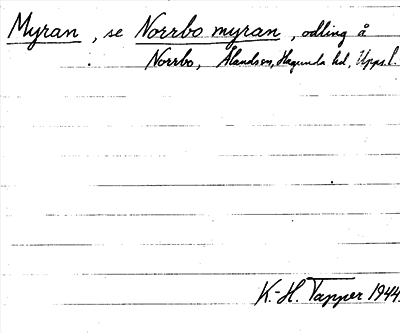 Myran, se Norrbo myran, odling å
Norrbo, Ålandsn, Hagunda hd, Upps. l.
K.-H. Tapper 1944.